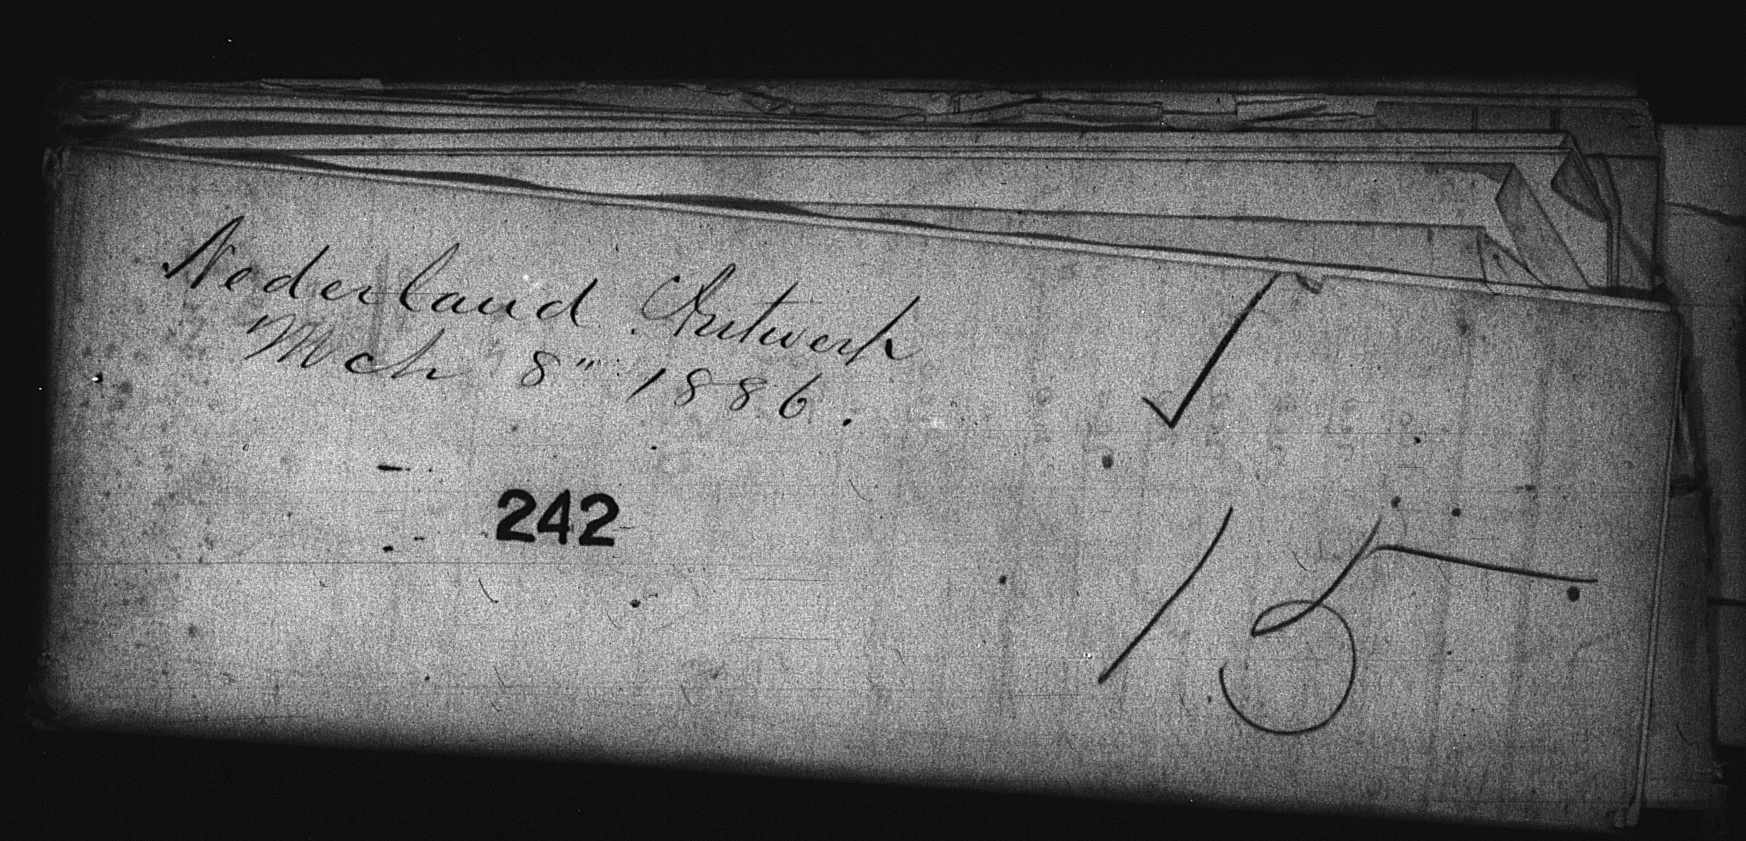 Nederland Antwerp
Mch 8" 1886.
242
15